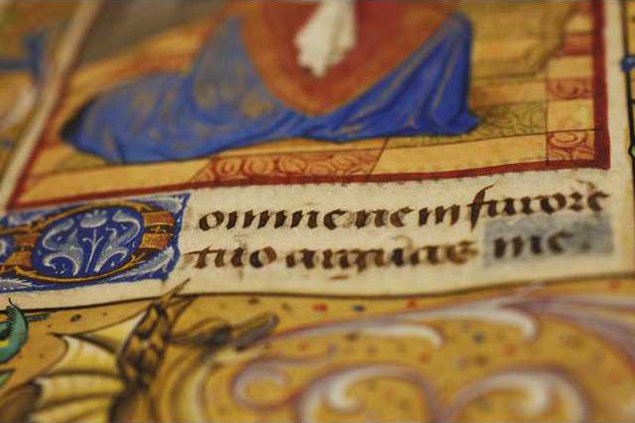 Domine ne in furore
tuo arguas me.